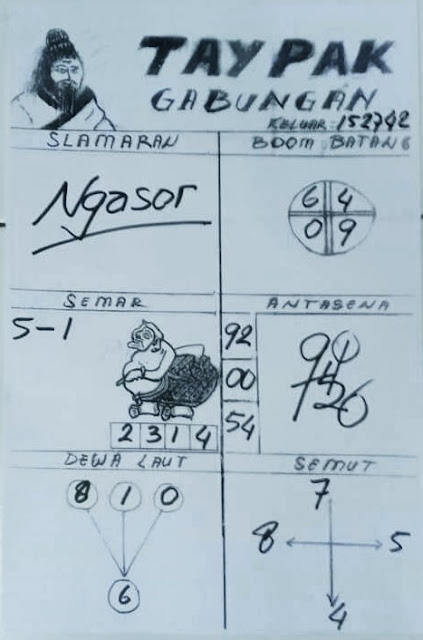 TAY PAK
GABUNGAN
KELUAR: 152742
SLAMARAN
BOOM BATANG
Ngasor
6 4
0 9
SEMAR
ANTASENA
5-1
92
00
54
2 3 1 4
DEWA LAUT
SEMUT
8 1 0
6
7
8 5
4